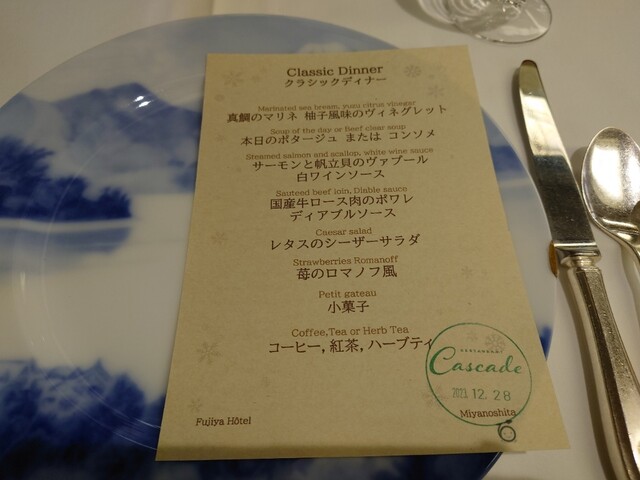 Classic Dinner
クラシックディナー
Marinated sea bream, yuzu citrus vinegar
真鯛のマリネ 柚子風味のヴィネグレット
Soup of the day or Beef clear soup
本日のポタージュ または コンソメ
Steamed salmon and scallop, white wine sauce
サーモンと帆立貝のヴァプール
白ワインソース
Sauteed beef loin, Diable sauce
国産牛ロース肉のポワレ
ディアブルソース
Caesar salad
レタスのシーザーサラダ
Strawberries Romanoff
苺のロマノフ風
Petit gateau
小菓子
Coffee,Tea or Herb Tea
コーヒー, 紅茶, ハーブティ
RESTAURANT
Cascade
2023.12.28
Fujiya Hôtel
Miyanoshita